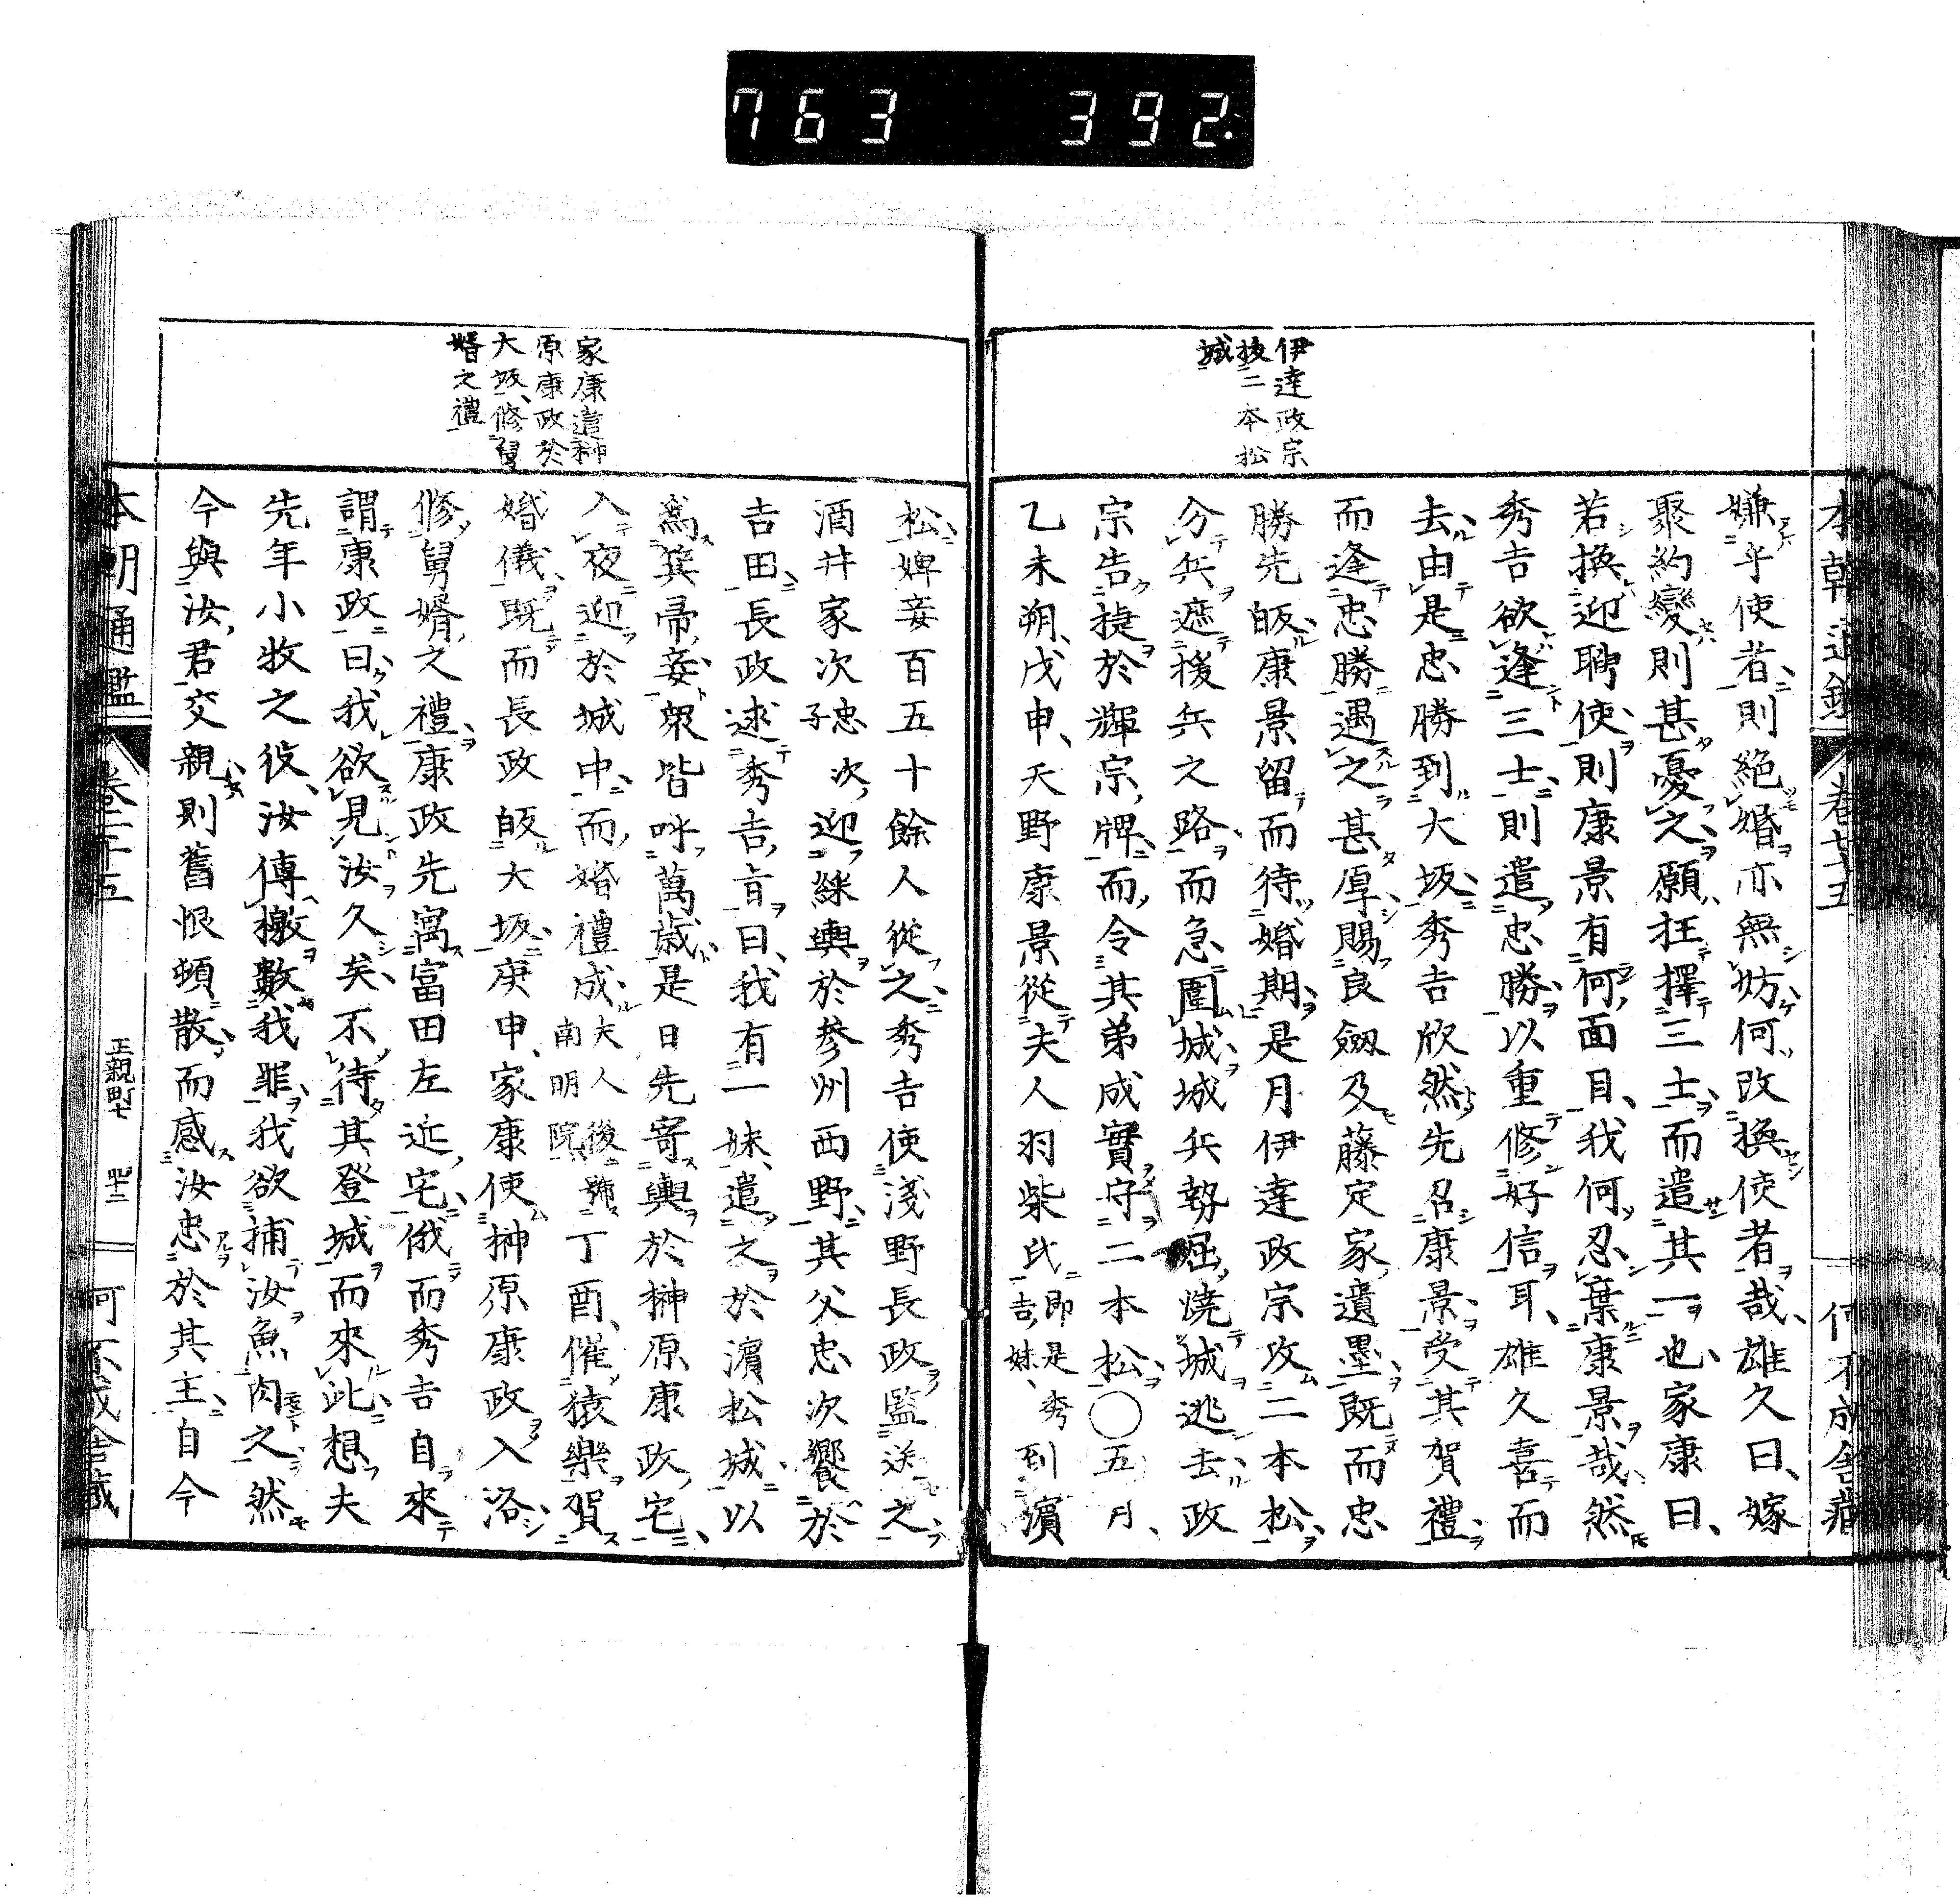 763 392
本朝通鑑 卷廿五 何不成舍藏
伊達政宗
拔二本松
城
嫌乎使者則絕婚亦無妨何改換使者哉雄久曰嫁
聚約變則甚憂之願狂擇三士而遣其一也家康曰
若換迎聘使則康景有何面目我何忍棄康景哉然
秀吉欲逢三士則遣忠勝以重修好信耳雄久喜而
去由是忠勝到大坂秀吉欣然先召康景受其賀禮
而逢忠勝遇之甚厚賜良劔及藤定家遺墨既而忠
勝先皈康景留而待婚期是月伊達政宗攻二本松
分兵遮援兵之路而急圍城城兵勢屈燒城逃去政
宗告捷於輝宗牌而令其弟成實守二本松〇五月
乙未朔戊申天野康景從夫人羽柴氏即是秀吉妹到濵
家康遣榊
原康政於
大坂修舅
婿之禮
松婢妾百五十餘人從之秀吉使淺野長政監送之
酒井家次忠次子迎綵輿於參州西野其父忠次饗於
吉田長政述秀吉旨曰我有一妹遣之於濵松城以
爲箕帚妾衆皆呼萬歳是日先寄輿於榊原康政宅
入夜迎於城中而婚禮成夫人後號南明院丁酉催猿樂賀
婚儀既而長政皈大坂庚申家康使榊原康政入洛
修舅婿之禮康政先寓富田左近宅俄而秀吉自來
謂康政曰我欲見汝久矣不待其登城而來此想夫
先年小牧之役汝傳檄數我罪我欲捕汝魚肉之然
今與汝君交親則舊恨頓散而感汝忠於其主自今
本朝通鑑 卷二十五 正親町七 四十二 何不成舍藏